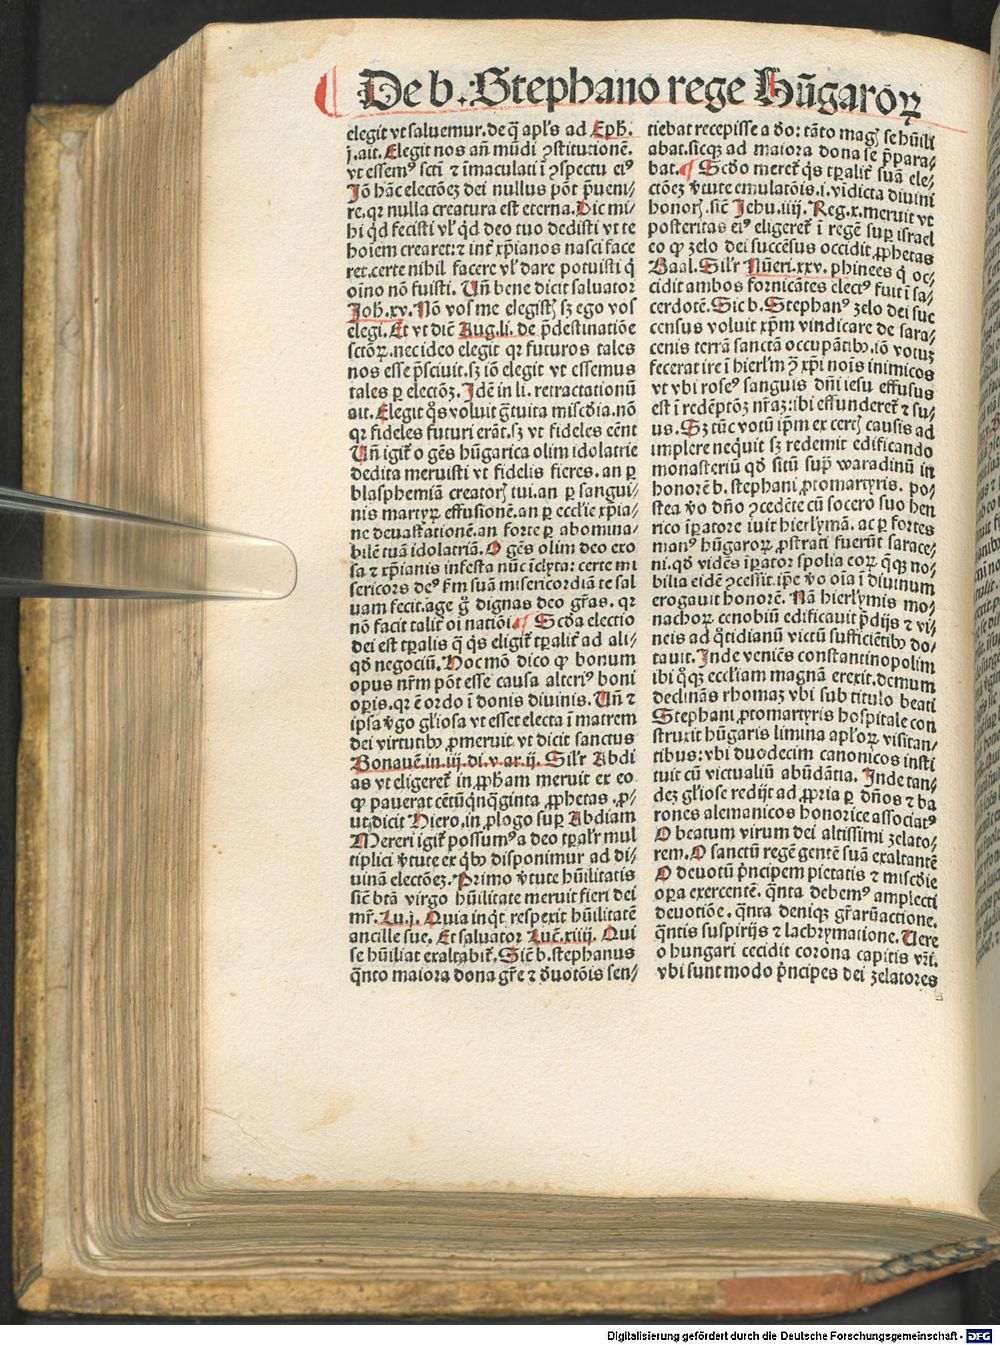 ¶ De b. Stephano rege Hūgaroꝝ
elegit vt saluemur. de q̄ apl's ad Eph̄.
j. ait. Elegit nos añ mūdi ꝯstitutionē.
vt essemꝰ scti ⁊ īmaculati ī ꝯspectu eiꝰ
Jō hāc electōeꝫ dei nullus pōt p̄ueni⸗
re. qr nulla creatura est eterna. Dic mi⸗
hi q̇d fecisti vl' q̇d deo tuo dedisti vt te
hoiem crearet: ⁊ int' xp̄ianos nasci face
ret. certe nihil facere vl' dare potuisti q̇
oīno nō fuisti. Vñ bene dicit saluator
Joh̄. xv. Nō vos me elegist ꝫ sꝫ ego vos
elegi. Et vt dic̄ Aug. li. de p̄destinatiōe
sctōꝝ. nec ideo elegit qr futuros tales
nos esse p̄sciuit. sꝫ iō elegit vt essemus
tales ꝑ electōꝫ. Jdē in li. retractationū
ait. Elegit q̊s voluit g̊tuita miscḋia. nō
qr fideles futuri erāt. sꝫ vt fideles eēnt
Vñ igit' o gēs hūgarica olim idolatrie
dedita meruisti vt fidelis fieres. an ꝑ
blasphemiā creatorꝫ tui. an ꝑ sangui⸗
nis martyꝝ effusionē. an ꝑ eccl'ie xp̄ia⸗
ne deuastationē. an forte ꝑ abomina⸗
bilē tuā idolatriā. O gēs olim deo exo
sa ⁊ xp̄ianis infesta nūc īclyta: certe mi
sericors deꝰ ẜm suā misericordiā te sal
uam fecit. age g̊ dignas deo gr̄as. qr
nō facit talit' oī natiōi. ¶ Scḋa electio
dei est tꝑalis q̄ q̊s eligit' tꝑalit' ad ali⸗
qḋ negociū. Hoc mō dico ꝙ bonum
opus nr̄m pōt esse causa alteriꝰ boni
oꝑis. qr ē ordo ī donis diuinis. Vñ ⁊
ipsa v̊go gl'iosa vt esset electa ī matrem
dei virtutibꝰ ꝓmeruit. vt dicit sanctus
Bonauē. in. iij. di. v. ar. ij. Sil'r Abdi
as vt eligeret' in ꝓph̄am meruit ex eo
ꝙ pauerat cētū q̇nq̇ginta ꝓphetas. ꝓ⸗
ut dicit Hiero. in ꝓlogo suꝑ Abdiam
Mereri igit' possumꝰ a deo tꝑal'r mul
tiplici v̊tute ex q̇bꝰ disponimur ad di⸗
uinā electōeꝫ. Primo v̊tute hūilitatis
sic̄ btā virgo hūilitate meruit fieri dei
mr̄. Lu. j. Quia inq̇t respexit hūilitatē
ancille sue. Et saluator Luc̄. xiiij. Qui
se hūiliat exaltabit'. Sic̄ b. stephanus
q̊nto maiora dona gr̄e ⁊ d̊uotōis sen⸗
tiebat recepisse a ḋo: tāto magꝫ se hūili
abat. sicqꝫ ad maiora dona se p̄para⸗
bat. ¶ Scḋo meret' q̊s tꝑalit' suā ele⸗
ctōeꝫ v̊tute emulatōis. i. vidicta diuini
honorꝫ. sic̄ Jehu. iiij. Reg. x. meruit vt
posteritas eiꝰ eligeret' ī regē suꝑ israel
eo ꝙ zelo dei succēsus occidit ꝓphetas
Baal. Sil'r Nūeri. xxv. phinees q̇ oc⸗
cidit ambos fornicātes electꝰ fuit ī sa⸗
cerdotē. Sic b. Stephanꝰ zelo dei suc
census voluit xp̄m vindicare de sara⸗
cenis terrā sanctā occupātibꝰ. iō votuꝫ
fecerat ire ī hierl'm ꝯ̄ xp̄i nois inimicos
vt vbi roseꝰ sanguis dn̄i iesu effusus
est ī redēptōꝫ nr̄aꝫ: ibi effunderet' ⁊ su⸗
us. Sꝫ tūc votū ip̄m ex certꝫ causis ad
implere nequit sꝫ redemit edificando
monasteriū qḋ sitū suꝑ waradinū in
honorē b. stephani ꝓtomartyris. po⸗
stea v̊o dn̄o ꝯcedēte cū socero suo hen
rico īꝑatore iuit hierlymā. ac ꝑ fortes
manꝰ hūgaroꝝ ꝓstrati fuerūt sarace⸗
ni. qḋ vidēs īꝑator spolia eoꝝ q̄qꝫ no⸗
bilia eidē ꝯcessit. ip̄e v̊o oīa ī diuinum
erogauit honorē. Nā hierlymis mo⸗
nachoꝝ cenobiū edificauit p̄dijs ⁊ vi⸗
neis ad q̊tidianū victū sufficiētibꝰ do⸗
tauit. Jnde veniēs constantinopolim
ibi q̊qꝫ eccl'iam magnā erexit. demum
declinās rhomaꝫ vbi sub titulo beati
Stephani ꝓtomartyris hospitale con
struxit hūgaris limina apl'oꝝ visitan⸗
tibus: vbi duodecim canonicos insti
tuit cū victualiū abūdātia. Jnde tan⸗
deꝫ gl'iose redijt ad ꝓpria ꝑ dn̄os ⁊ ba
rones alemanicos honorice associatꝰ
O beatum virum dei altissimi zelato⸗
rem. O sanctū regē gentē suā exaltantē
O deuotū p̄ncipem pietatis ⁊ miscḋie
oꝑa exercentē. q̊nta debemꝰ amplecti
deuotiōe. q̊nta deniqꝫ gr̄aꝝactione.
q̊ntis suspirijs ⁊ lachrymatione. Vere
o hungari cecidit corona capitis vr̄i.
vbi sunt modo p̄ncipes dei zelatores
Digitalisierung gefördert durch die Deutsche Forschungsgemeinschaft - DFG